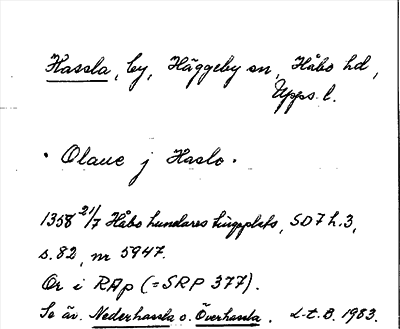 Hassla, by, Häggeby sn, Håbo hd,
Upps. l.
· Olaue j Haslo ·
1358 21/7 Håbo hundares tingsplats, SD 7 h.3,
s. 82, nr 5947.
Or i RAp (= SRP 377).
Se äv. Nederhassla o. Överhassla. L-t. B. 1983.